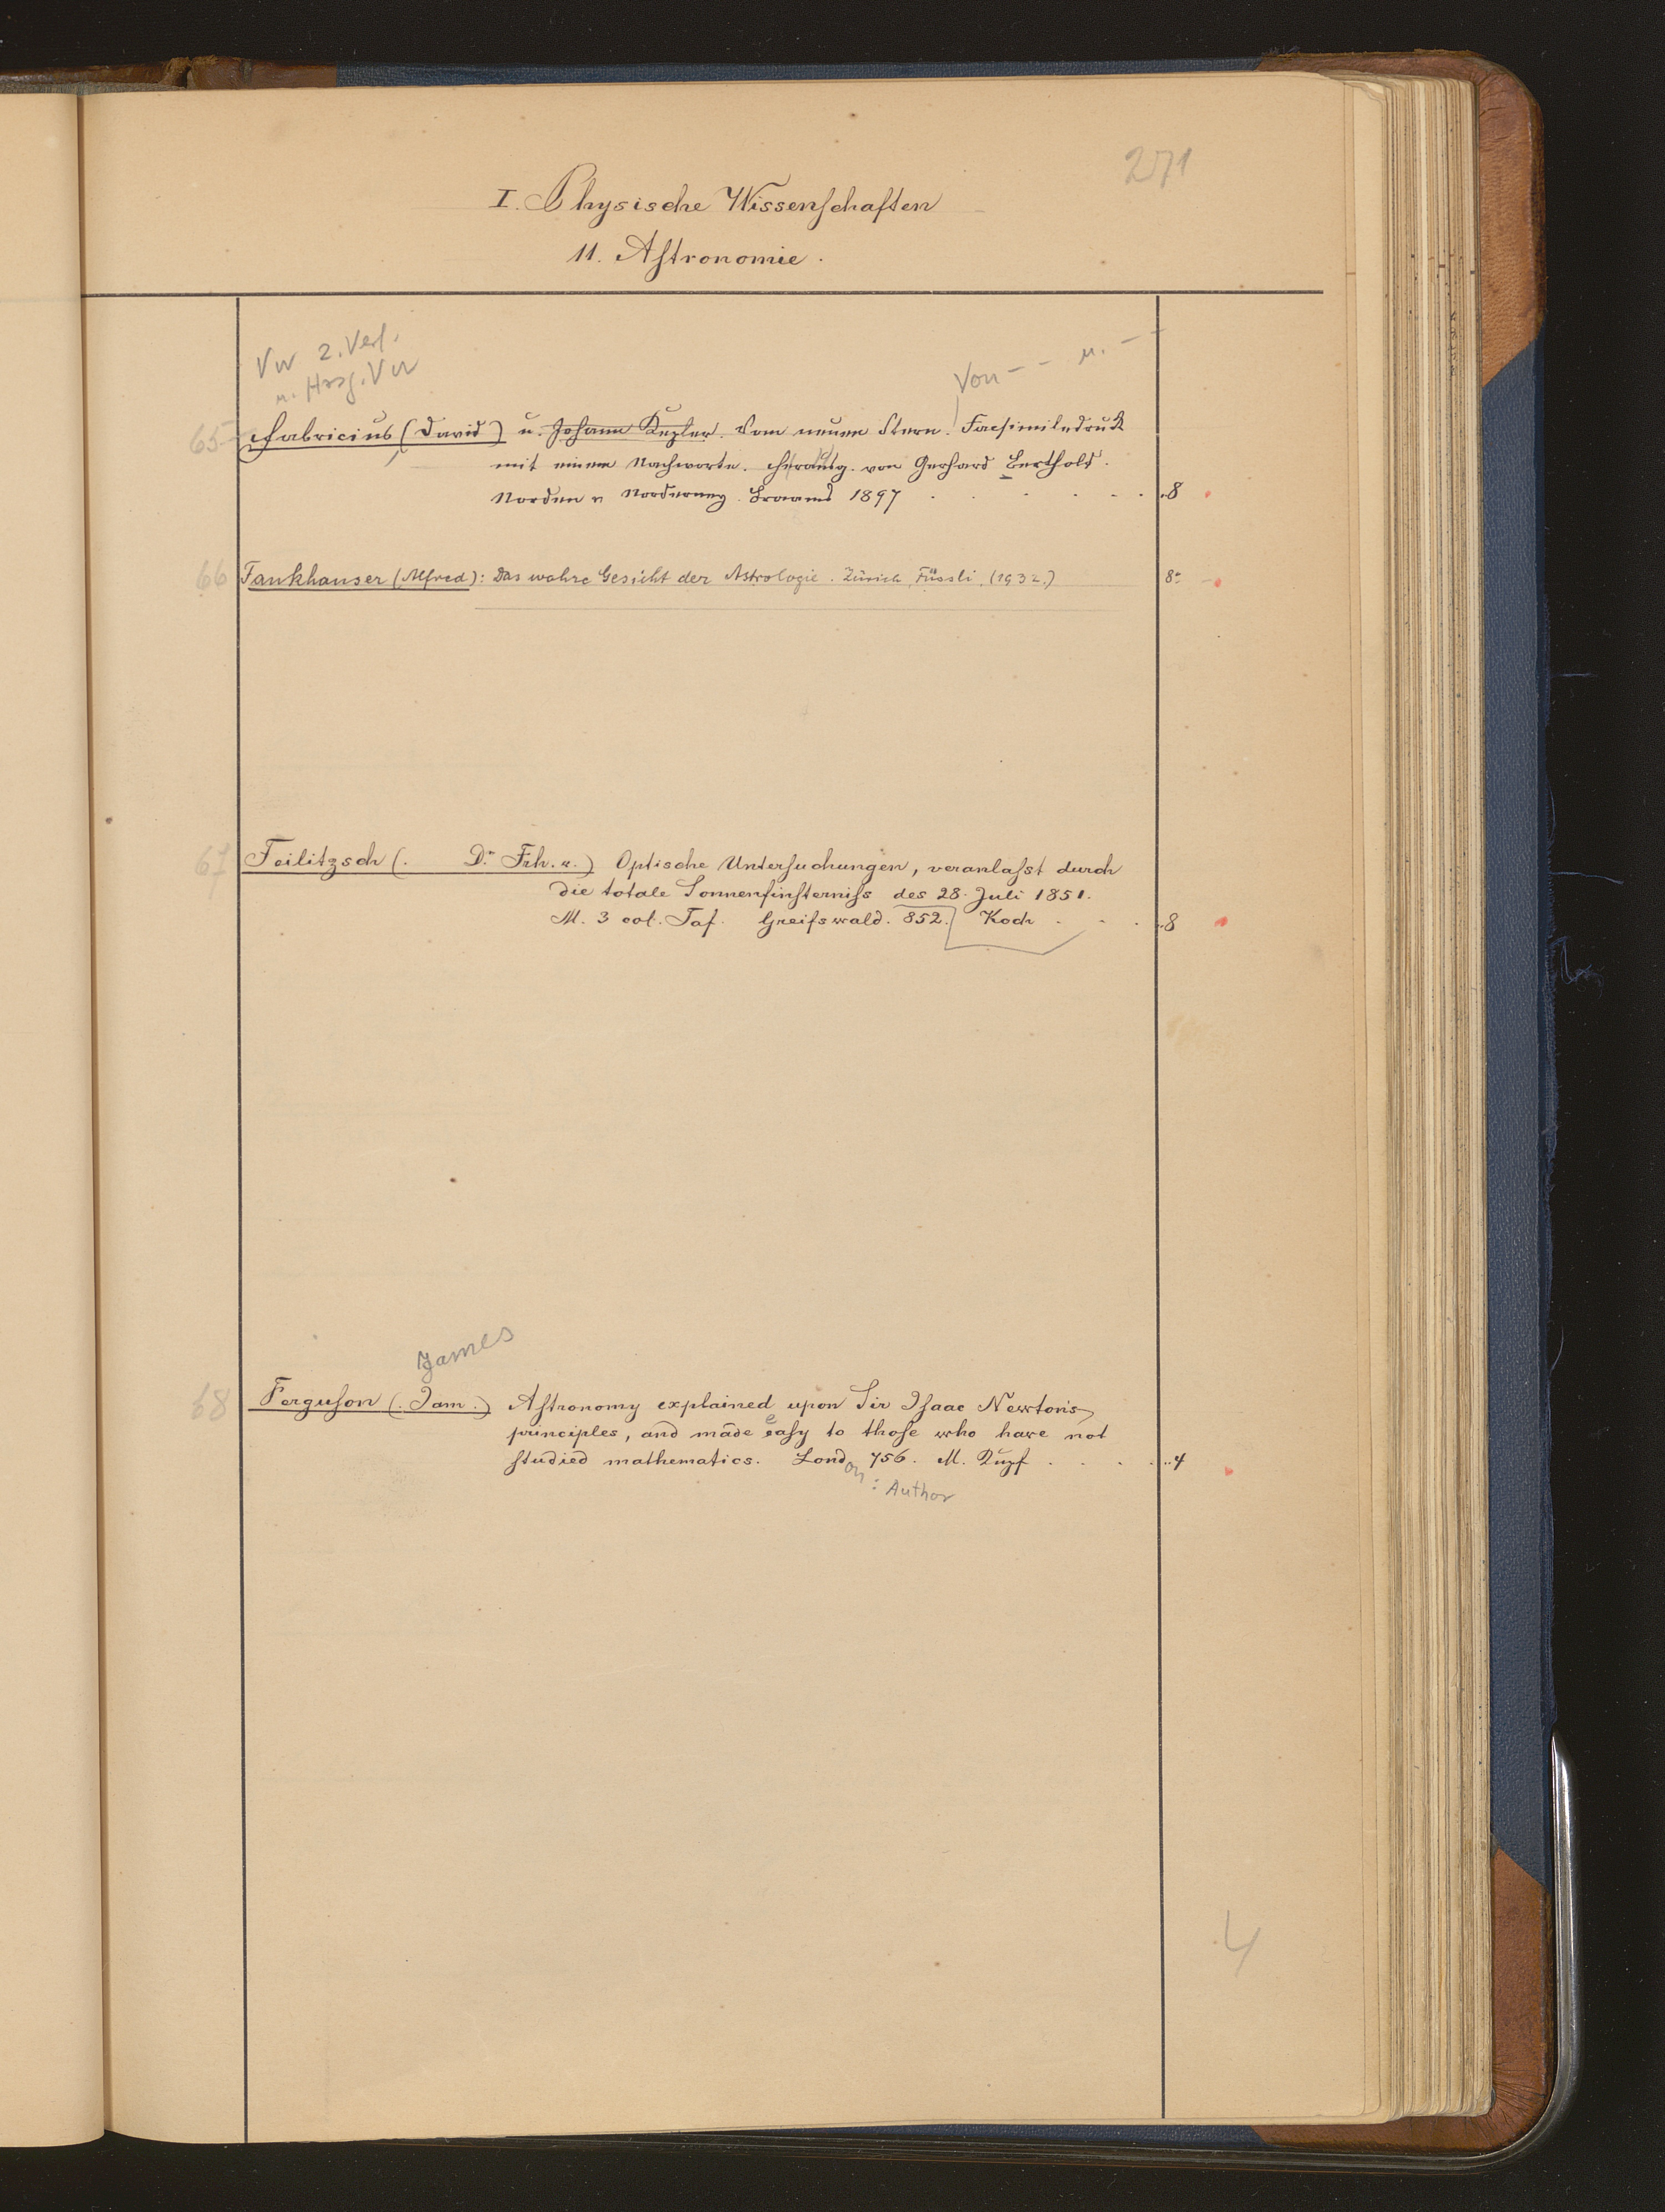 271
I. Physische Wissenschaften
11. Astronomie.
Vw 2. Verf.
u. Hrsg. Vw
Von – – u. – –
65 Fabricius, (David) u. Johann Kepler. Vom neuen Stern. Facsimiledruck
mit einem Nachworte. herausg. von Gerhard Berthold.
Norden u Norderney. Braams 1897 . . . . . . 8
66 Fankhauser (Alfred): Das wahre Gesicht der Astrologie. Zürich, Füssli, (1932.) 8°
67 Feilitzsch (. Dr. Frh. v.) Optische Untersuchungen, veranlasst durch
die totale Sonnenfinsterniss des 28. Juli 1851.
M. 3 col. Taf. Greifswald. 852. Koch . . . 8
James
68 Ferguson (. Jam.) Astronomy explained upon Sir Isaac Newton's
principles, and made easy to those who have not
studied mathematics. London 756. M. Kupf . . . . 4
: Author
4